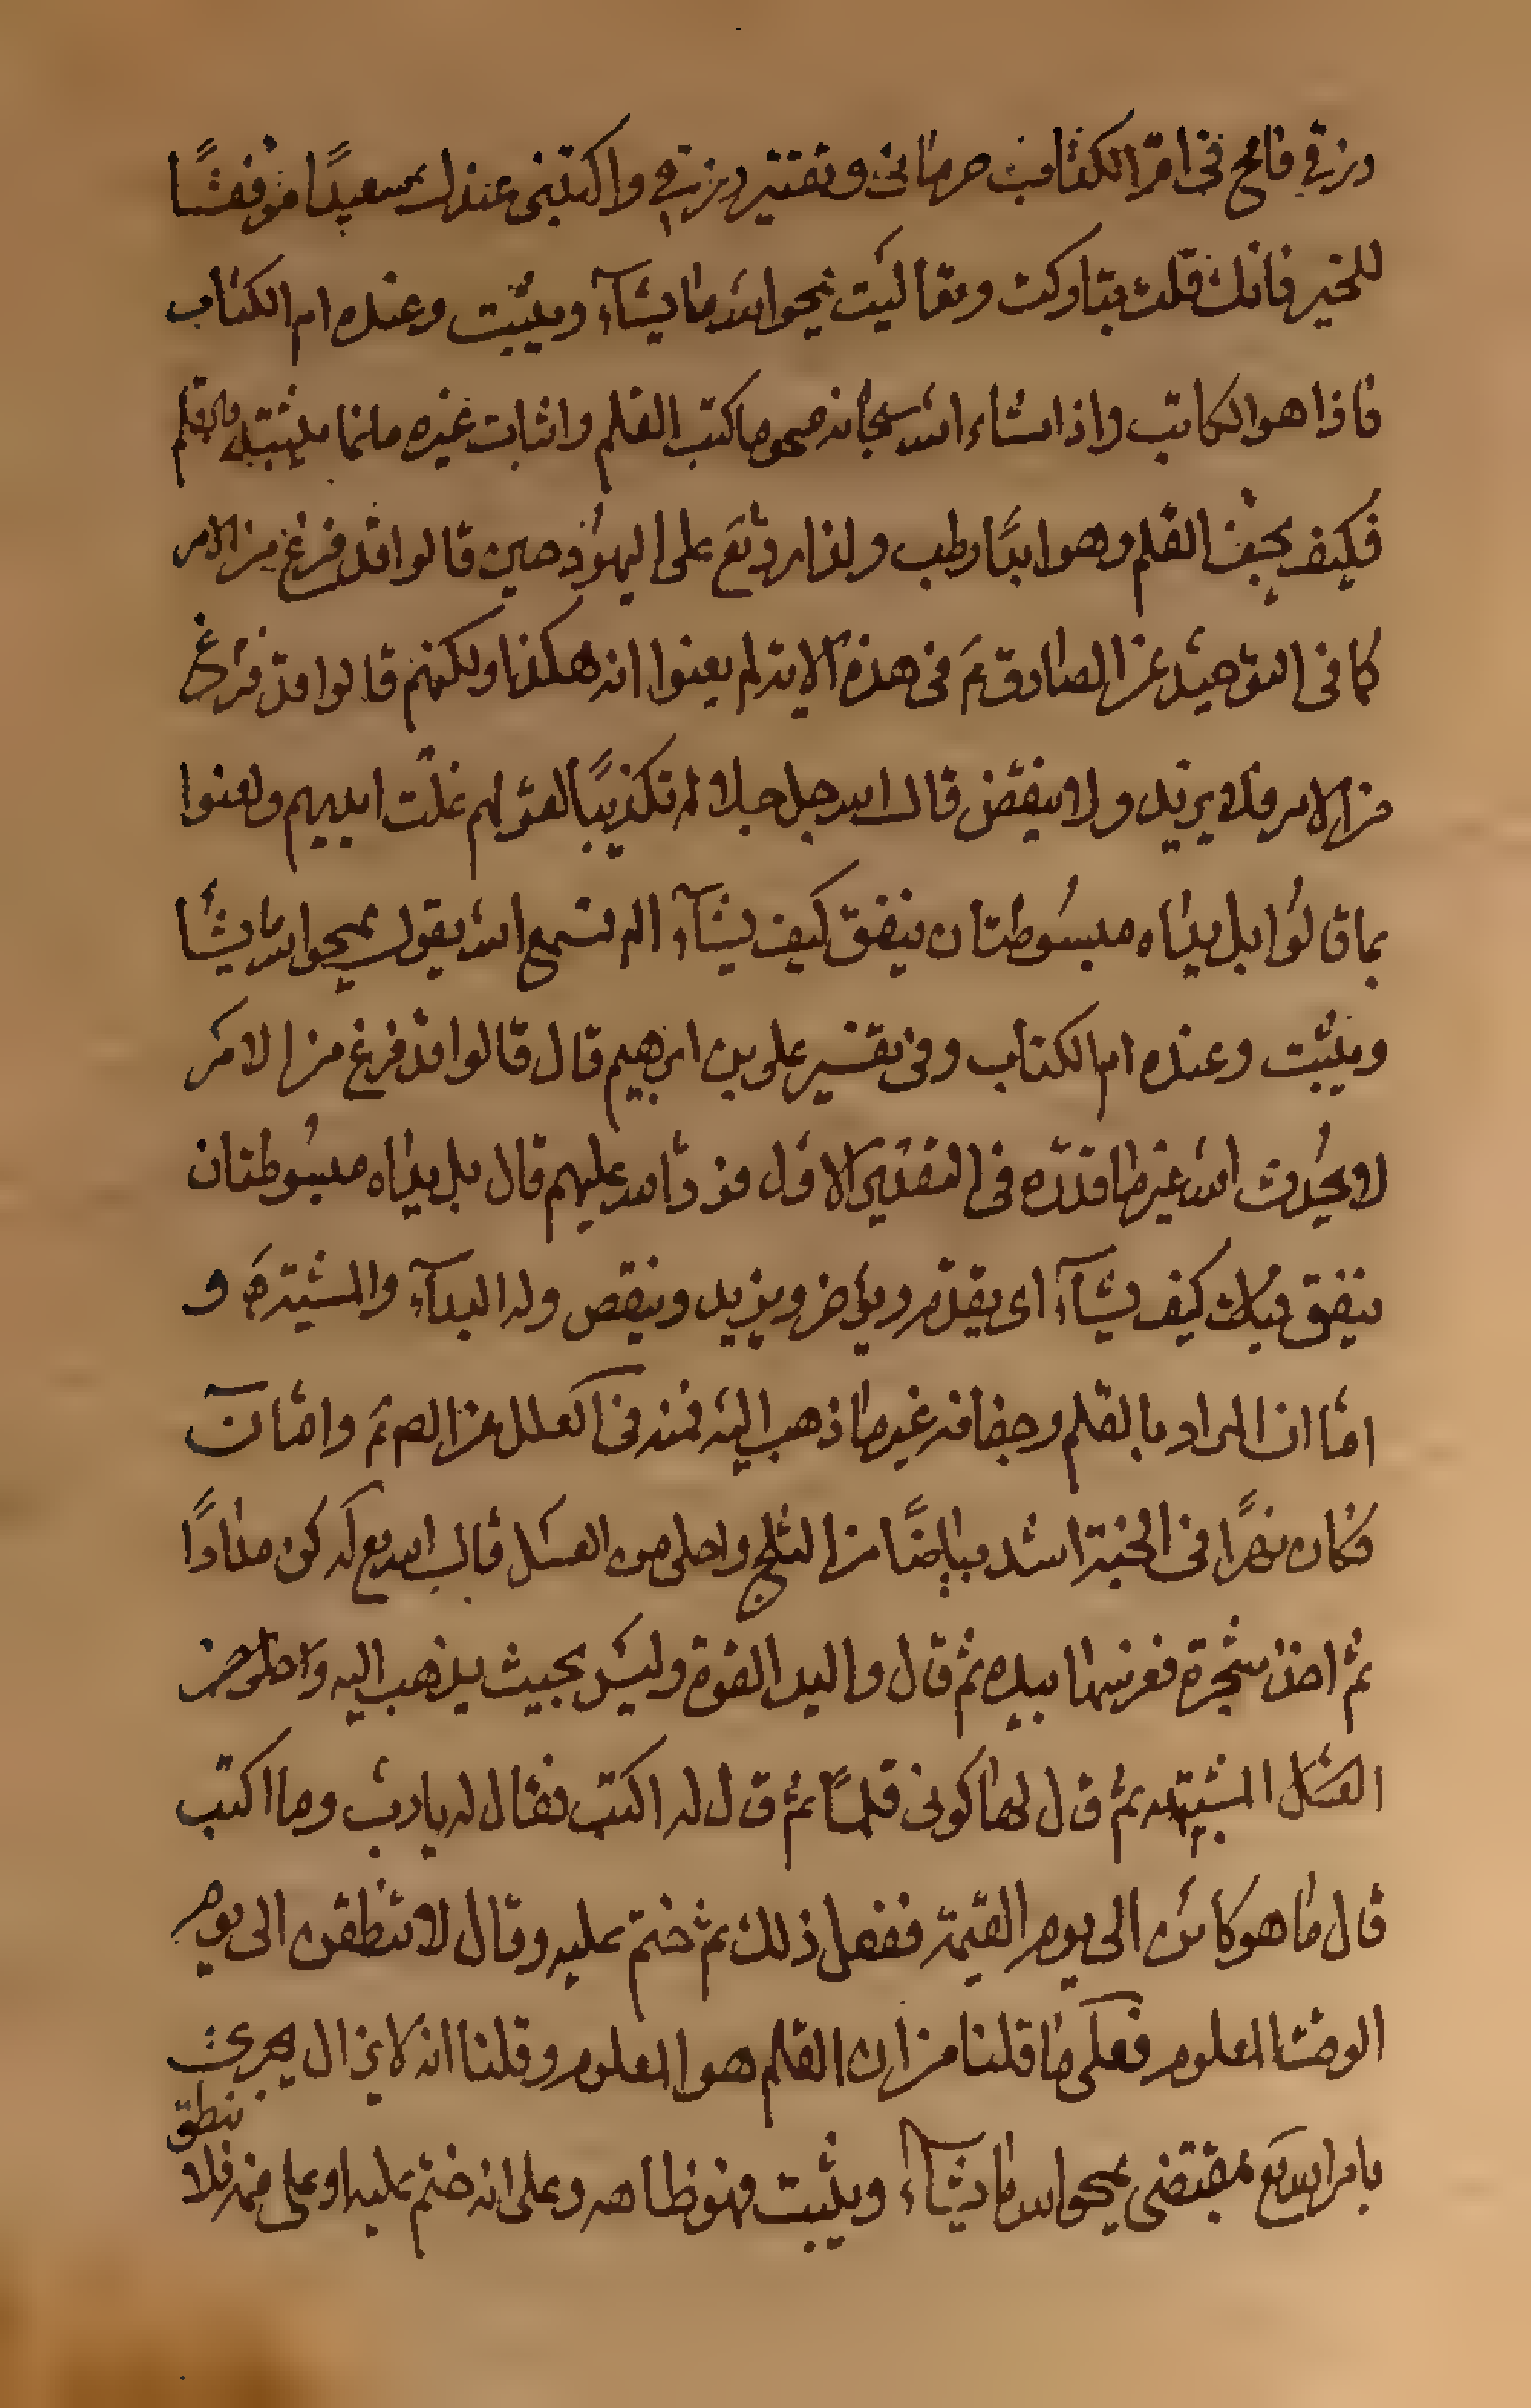 رزقي فامح في ام الكتاب حرماني وتقتير رزقي واكتبني عندك سعيدًا موفقًا
للخير فانك قلت تباركت وتعاليت يمحو الله ما يشآء ويثبت وعنده ام الكتاب
فاذا هو الكاتب واذا شاء الله سبحانه محو ما كتب القلم واثبات غيره فانما يثبته بالقلم
فكيف يجف القلم وهو ابدًا رطب ولذا رد تع على اليهود حين قالوا قد فرغ من الامر
كما في التوحيد عن الصادق ع في هذه الاية لم يعنوا انه هكذا ولكنهم قالوا قد فرغ
من الامر فلا يزيد ولا ينقص قال الله جل جلاله تكذيبًا لقولهم غلت ايديهم ولعنوا
بما قالوا بل يداه مبسوطتان ينفق كيف يشآء الم تسمع الله يقول يمحو الله ما يشا
ويثبت وعنده ام الكتاب وفي تفسير علي بن ابرهيم قال قالوا قد فرغ من الامر
لا يحدث الله غير ما قدره في التقدير الاول فرد الله عليهم قال بل يداه مبسوطتان
ينفق كيف يشآء اى يقدم ويؤخر ويزيد وينقص وله البدآء والمشية و
اما ان المراد بالقلم وجفافه غير ما ذهب اليه فمنه في العلل عن الصم ع واما ن
فكان نهرًا في الجنة اشد بياضًا من الثلج واحلى من العسل قال الله تع له كن مدادًا
ثم اخذ شجرة فغرسها بيده ثم قال واليد القوة وليس بحيث يذهب اليه واحلى من
العسل المشبهه ثم قال لها كوني قلمًا ثم قال له اكتب فقال له يا رب وما اكتب
قال ما هو كائن الى يوم القيمة ففعل ذلك ثم ختم عليه وقال لا تنطقن الى يوم
الوقت المعلوم فعلى ما قلنا من ان القلم هو المعلوم وقلنا انه لا يزال يجري
بامر الله تع بمقتضى يمحو الله ما يشآء ويثبت فهو ظاهر وعلى انه ختم عليه او على فمه فلا
ينطق